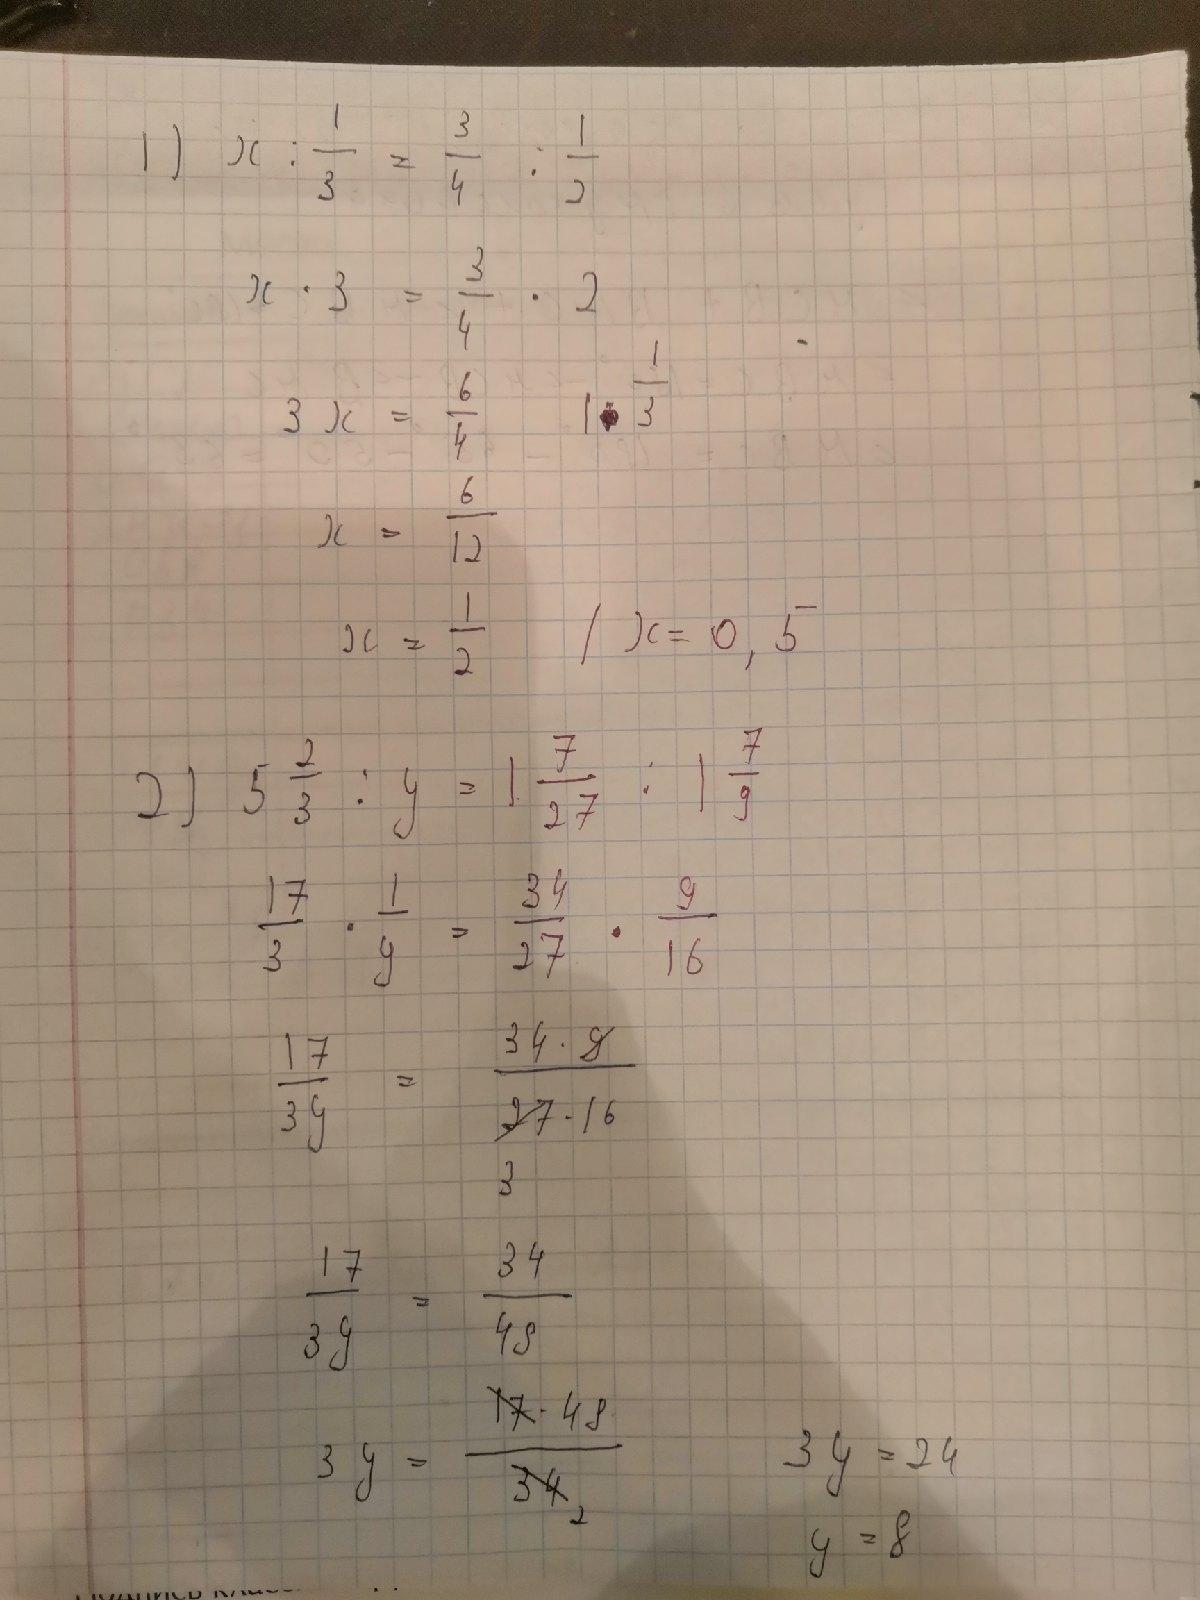 1) x : 1/3 = 3/4 : 1/2
x · 3 = 3/4 · 2
3x = 6/4 1 1/3
x = 6/12
x = 1/2 / x = 0,5
2) 5 2/3 : y = 1 7/27 : 1 7/9
17/3 · 1/y = 34/27 · 9/16
17/3y = 34·9/27·16
3
17/3y = 34/48
3y = 17·48/34 2 3y = 24
y = 8